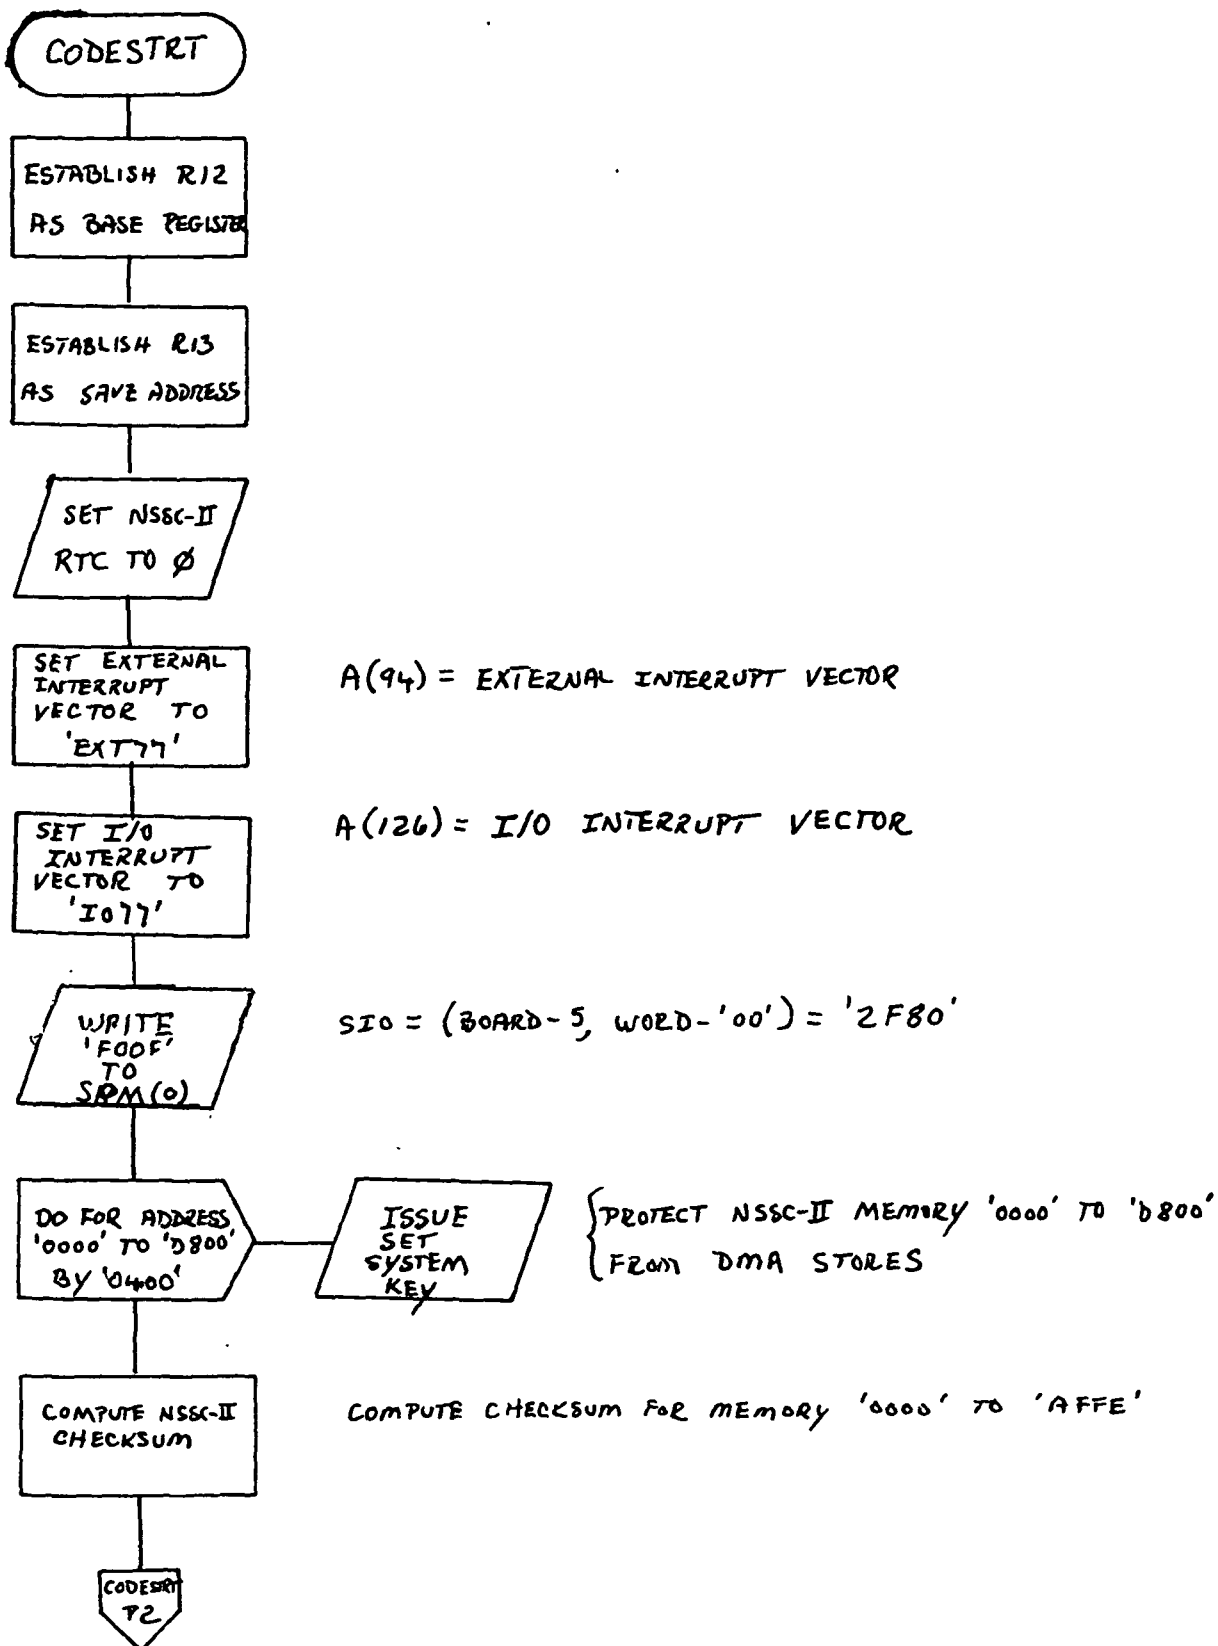 CODESTRT
ESTABLISH R12
AS BASE REGISTER
ESTABLISH R13
AS SAVE ADDRESS
SET NSSC-II
RTC TO Ø
SET EXTERNAL
INTERRUPT
VECTOR TO
'EXT77'
A(94) = EXTERNAL INTERRUPT VECTOR
SET I/O
INTERRUPT
VECTOR TO
'IO77'
A(126) = I/O INTERRUPT VECTOR
WRITE
'F00F'
TO
SPM(0)
SIO = (BOARD-5, WORD-'00') = '2F80'
DO FOR ADDRESS
'0000' TO 'D800'
BY '0400'
ISSUE
SET
SYSTEM
KEY
PROTECT NSSC-II MEMORY '0000' TO 'D800'
FROM DMA STORES
COMPUTE NSSC-II
CHECKSUM
COMPUTE CHECKSUM FOR MEMORY '0000' TO 'AFFE'
CODESTRT
P2